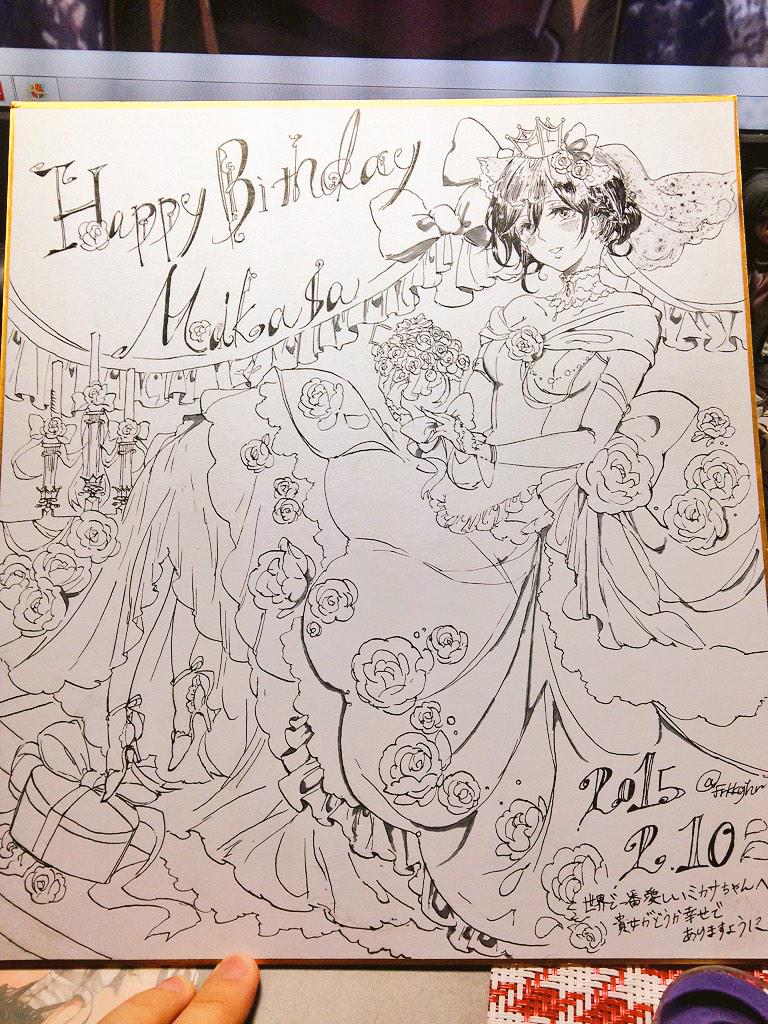 Happy Birthday
Mikasa
2015
2.10
世界で一番愛しいミカサちゃんへ
貴女がどうか幸せで
ありますように